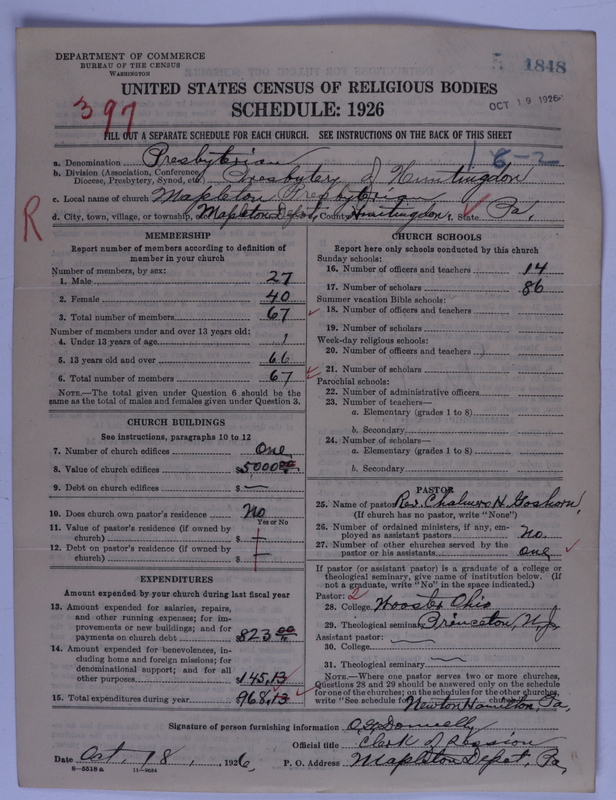 DEPARTMENT OF COMMERCE
BUREAU OF THE CENSUS
WASHINGTON
1848
UNITED STATES CENSUS OF RELIGIOUS BODIES
SCHEDULE: 1926
OCT 19 1926
397
FILL OUT A SEPARATE SCHEDULE FOR EACH CHURCH. SEE INSTRUCTIONS ON THE BACK OF THIS SHEET
1 6-2
a. Denomination Presbyterian
b. Division (Association, Conference, Diocese, Presbytery, Synod, etc.) Presbytery of Huntingdon
c. Local name of church Mapleton Presbyterian
R
d. City, town, village, or township, Mapleton Depot, County Huntingdon, State Pa.
MEMBERSHIP
Report number of members according to definition of
member in your church
Number of members, by sex:
1. Male 27
2. Female 40
3. Total number of members 67
Number of members under and over 13 years old:
4. Under 13 years of age 1
5. 13 years old and over 66
6. Total number of members 67
NOTE.—The total given under Question 6 should be
same as the total of males and females given under Question 3.
CHURCH BUILDINGS
See instructions, paragraphs 10 to 12
7. Number of church edifices One
8. Value of church edifices $5000 00
9. Debt on church edifices $ —
10. Does church own pastor's residence No
Yes or No
11. Value of pastor's residence (if owned by
church) $
12. Debt on pastor's residence (if owned by
church) $
EXPENDITURES
Amount expended by your church during last fiscal year
13. Amount expended for salaries, repairs,
and other running expenses; for im-
provements or new buildings; and for
payments on church debt $823 00
14. Amount expended for benevolences, in-
cluding home and foreign missions; for
denominational support; and for all
other purposes $145.13
15. Total expenditures during year $968.13
CHURCH SCHOOLS
Report here only schools conducted by this church
Sunday schools:
16. Number of officers and teachers 14
17. Number of scholars 86
Summer vacation Bible schools:
18. Number of officers and teachers
19. Number of scholars
Week-day religious schools:
20. Number of officers and teachers
21. Number of scholars
Parochial schools:
22. Number of administrative officers
23. Number of teachers—
a. Elementary (grades 1 to 8)
b. Secondary
24. Number of scholars—
a. Elementary (grades 1 to 8)
b. Secondary
PASTOR
25. Name of pastor Rev. Chalmers H. Goshorn,
(If church has no pastor, write "None")
26. Number of ordained ministers, if any, em-
ployed as assistant pastors No.
27. Number of other churches served by the
pastor or his assistants one
If pastor (or assistant pastor) is a graduate of a college or
theological seminary, give name of institution below. (If
not a graduate, write "No" in the space indicated.)
Pastor: 2
28. College Wooster Ohio
29. Theological seminary Princeton, N.J.
Assistant pastor:
30. College
31. Theological seminary
NOTE.—Where one pastor serves two or more churches,
Questions 28 and 29 should be answered only on the schedule
for one of the churches; on the schedules for the other churches,
write "See schedule for Newton Hamilton, Pa.
Signature of person furnishing information O.G. Donnelly
Official title Clerk of Session
Date Oct. 18, 1926. P. O. Address Mapleton Depot, Pa.
8—5518a 11—9084